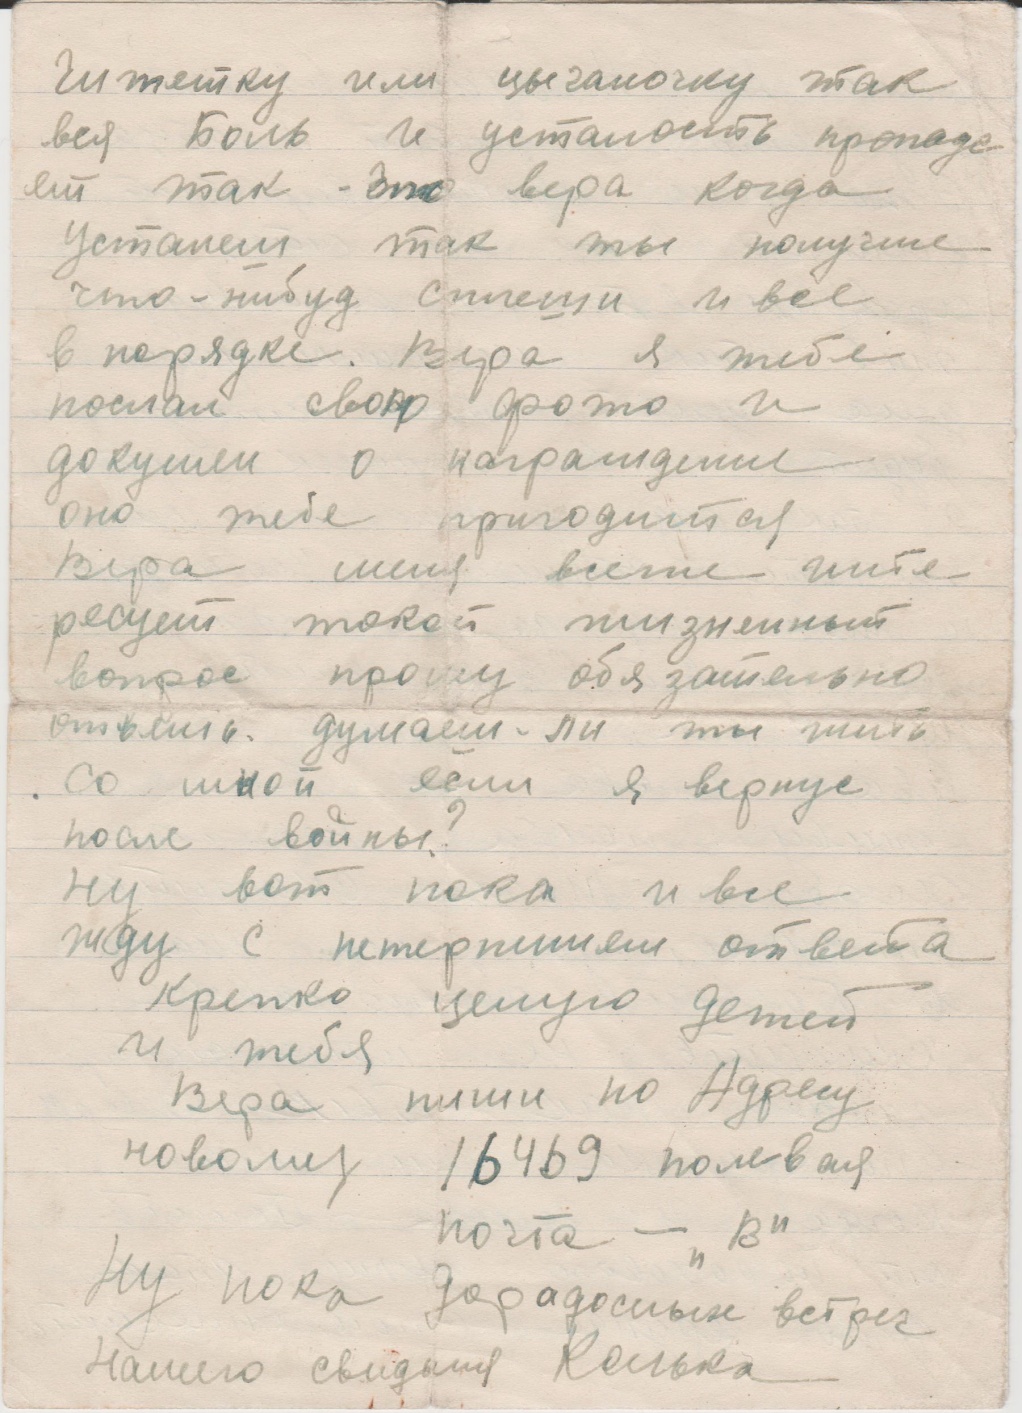 Чижетку или цыганочку так
вся Боль и усталость пропаде
ет так - Это вера когда
Устанем так ты получше
что-нибуд спляши и все
в порядке. Вера я тебе
послал свою фото и
докумен о награждение
оно тебе пригодится
Вера меня всеже инте
ресует такой жизненный
вопрос прошу обязательно
ответь. думаеш-ли ты жить
со мной если я вернус
после войны?
Ну вот пока и все
жду с нетерпинием ответа
Крепко целую детей
и тебя
Вера пиши по Адресу
новому 16469 полевая
почта — „В"
Ну пока дорадосных встреч
Нашего свиданя Колька